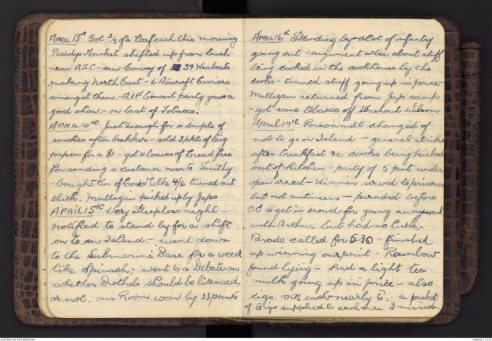 APRIL 13th Got 2/3 of a loaf each this morning
Market shifted up from bush
near A.S.C. - saw Convoy of 39 Warboats
making North East - 2 Aircraft Carriers
amongst them - A.I.F. Concert party gave a
good show - on last of Tobacco.
APRIL 14th Just enough for a couple of
smokes after brekker - sold 3 pkts of
papers for a $1 - got a loaves of bread free
for sending a customer over to Smithy
- bought tin of Cond Milk $1/- turned out
thick. Mulligan picked up by Japs
APRIL 15th Very Sleepless night -
notified to stand by for a shift
on to new Island - went down
to the Submarine Base for a weed
like Spinach - went to a Debate on
whether Brothels should be licensed
or not. our Room won by 33 points
APRIL 16th Standing by - a lot of infantry
going out - argument arose about stuff
being cooked in the cookhouse by the
cooks - tinned stuff going up in price
Mulligan returned from Jap camp
- got some tobacco off Wilson
April 17th Personnel changed of
not to go on Island - general strike
after breakfast re cooks being kicked
out of kitchen - party of 5 put under
open arrest - dinner served to prisoners
but not mutineers - paraded before
O.C. to get in
with Arthur but had no luck.
Parade called for 6-30 - finished
up winning our point -
found lying - had a light tea
milk going up in price - also
cigs. 10¢ each nearly 6. a packet
of Cigs supplied to each man I missed